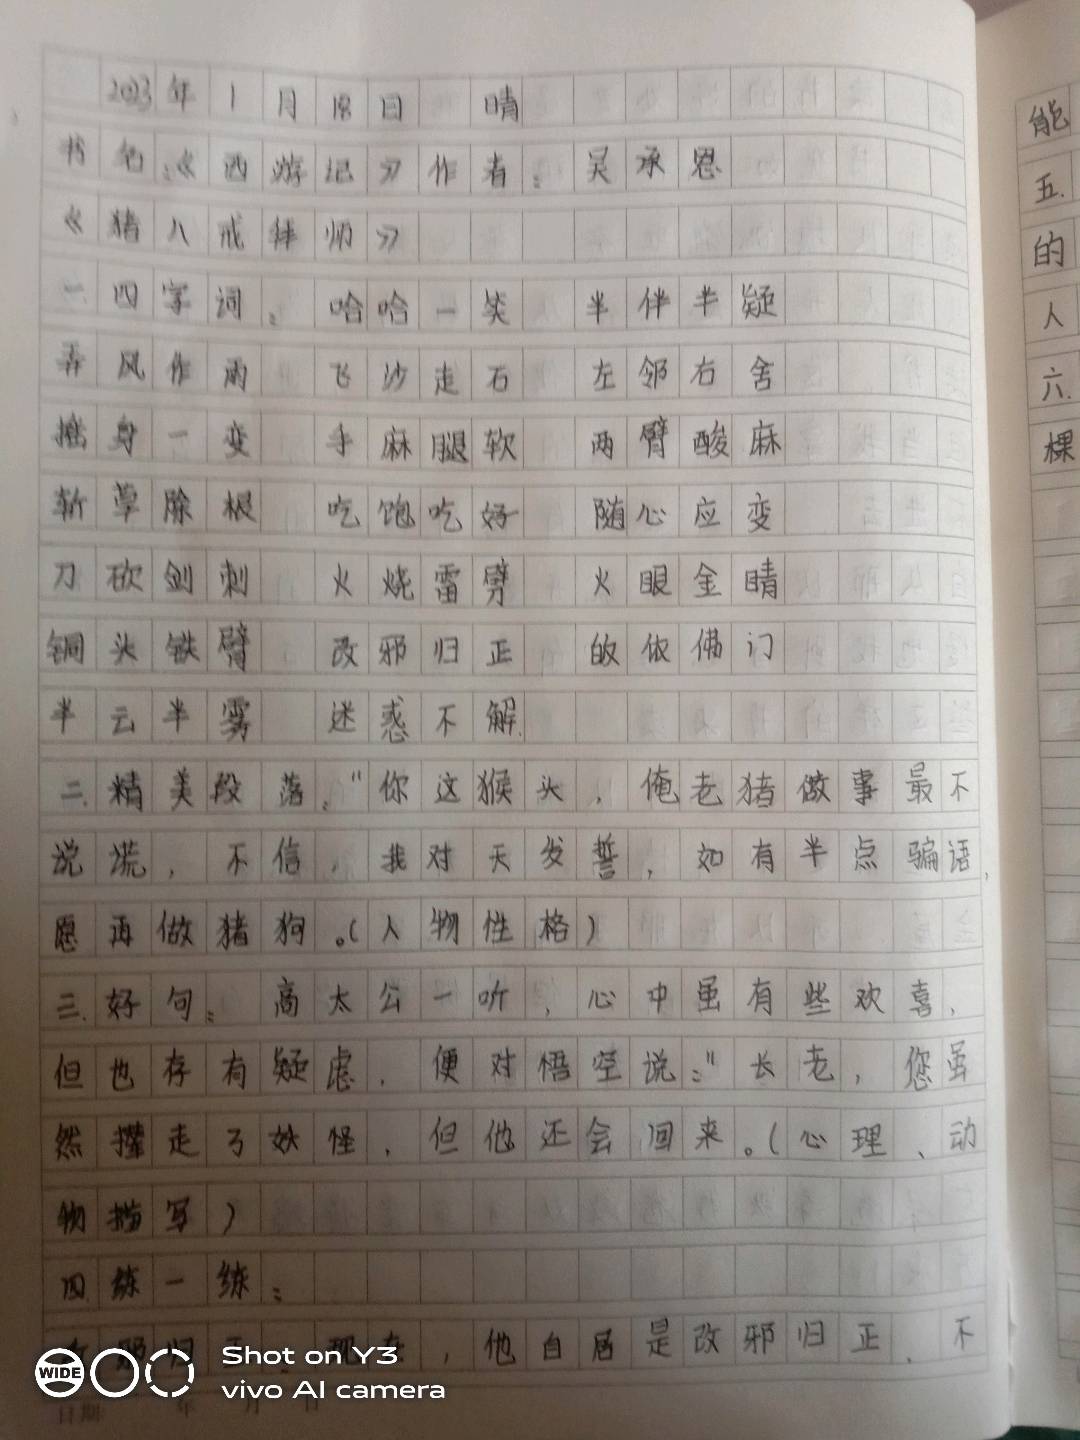 2023年1月18日 晴
书名:《西游记》作者:吴承恩
《猪八戒拜师》
一.四字词: 哈哈一笑 半伴半疑
弄风作雨 飞沙走石 左邻右舍
摇身一变 手麻腿软 两臂酸麻
斩草除根 吃饱吃好 随心应变
刀砍剑刺 火烧雷劈 火眼金睛
铜头铁臂 改邪归正 皈依佛门
半云半雾 迷惑不解
二.精美段落:"你这猴头,俺老猪做事最不
说谎,不信,我对天发誓,如有半点骗语,
愿再做猪狗。(人物性格)
三.好句: 高太公一听,心中虽有些欢喜,
但也存有疑虑,便对悟空说:"长老,您虽
然撵走了妖怪,但他还会回来。(心理、动
物描写)
四.练一练:
邪归 ,他自居是改邪归正、不
能
五.
的
人
六.
棵
WIDE
Shot on Y3
vivo AI camera
日期 年 月 日